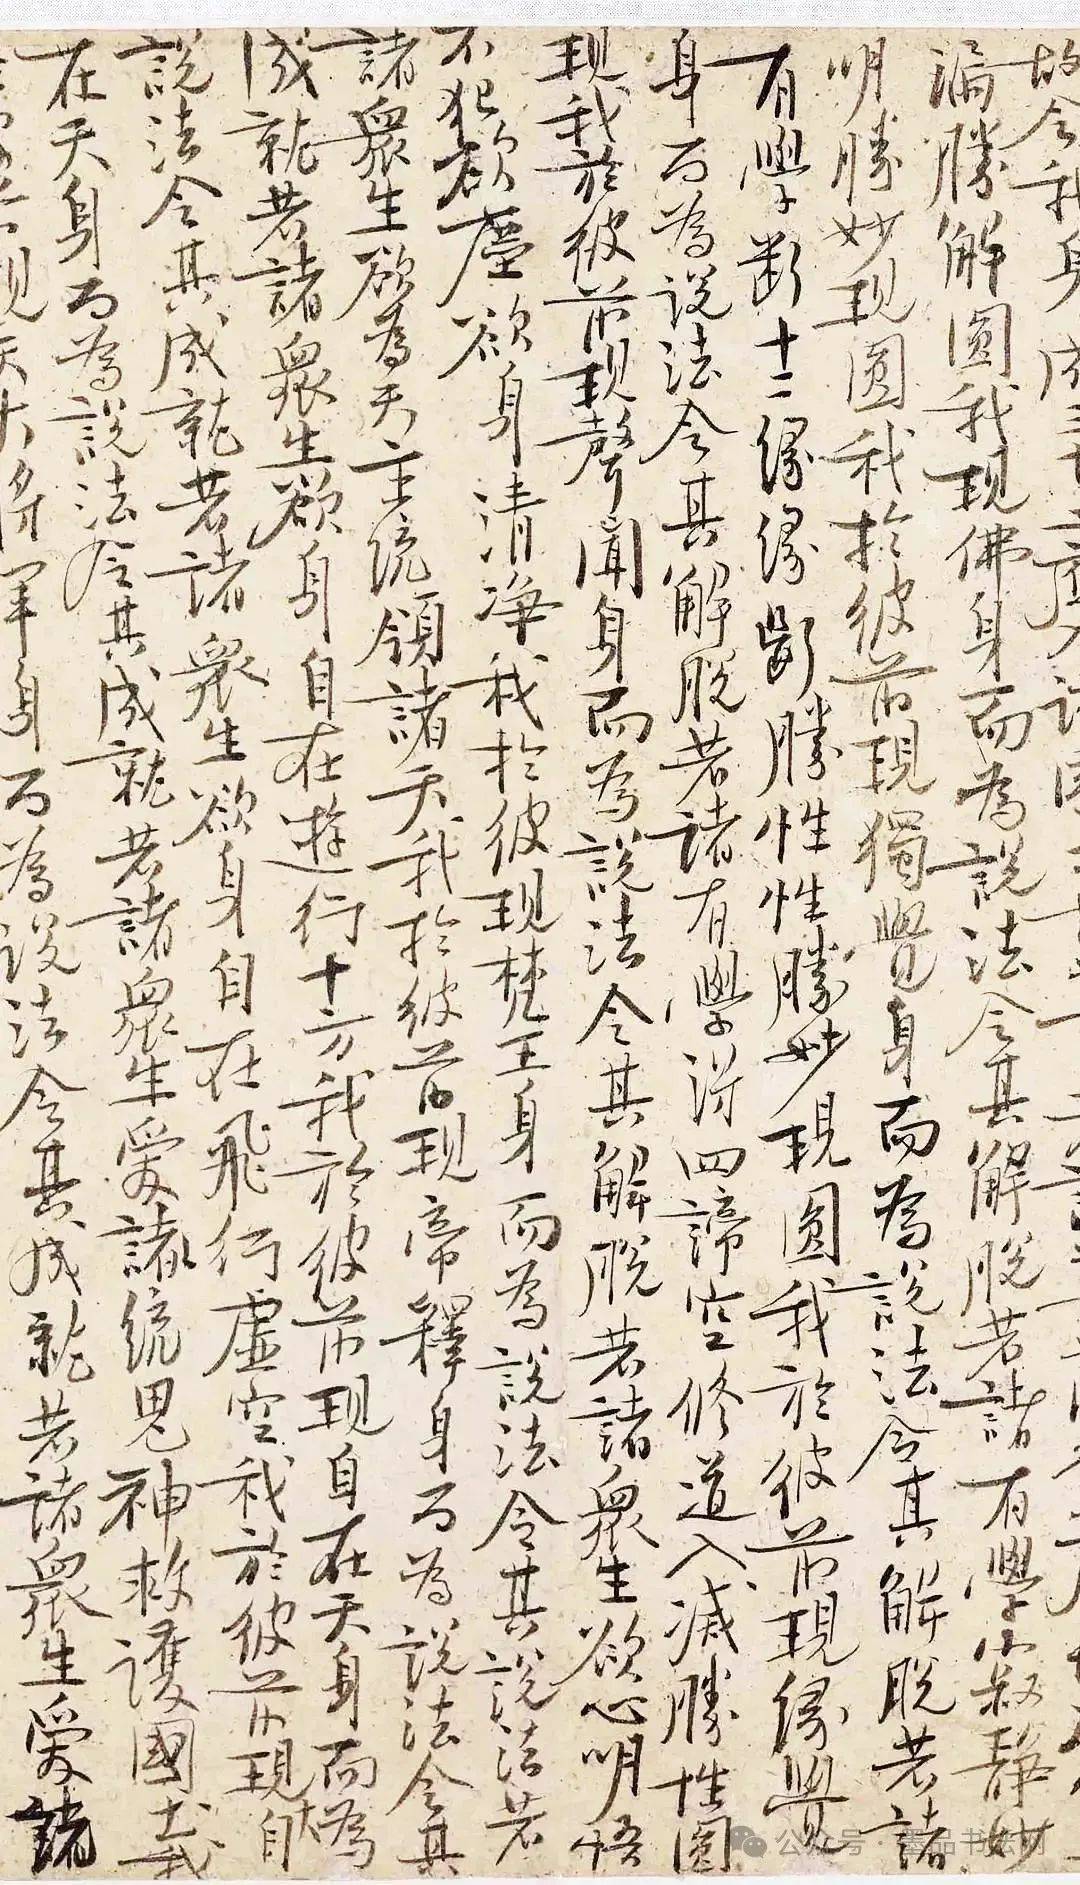 故令我身成三十二應入諸國土
漏勝解圓我現佛身而為說法令其解脫若諸有學寂靜妙
明勝妙現圓我於彼前現獨覺身而為說法令其解脫若諸
有學斷十二緣緣斷勝性性勝妙現圓我於彼前現緣覺
身而為說法令其解脫若諸有學得四諦空修道入滅勝性圓
現我於彼前現聲聞身而為說法令其解脫若諸眾生欲心明悟
不犯欲塵欲身清淨我於彼現梵王身而為說法令其說法若
諸眾生欲為天主統領諸天我於彼前現帝釋身而為說法令其
成就若諸眾生欲身自在遊行十方我於彼前現自在天身而為
說法令其成就若諸眾生欲身自在飛行虛空我於彼前現大自
在天身而為說法令其成就若諸眾生愛諸統鬼神救護國土我
現天大將軍身而為說法令其成就若諸眾生愛諸
公众号·墨品书法网